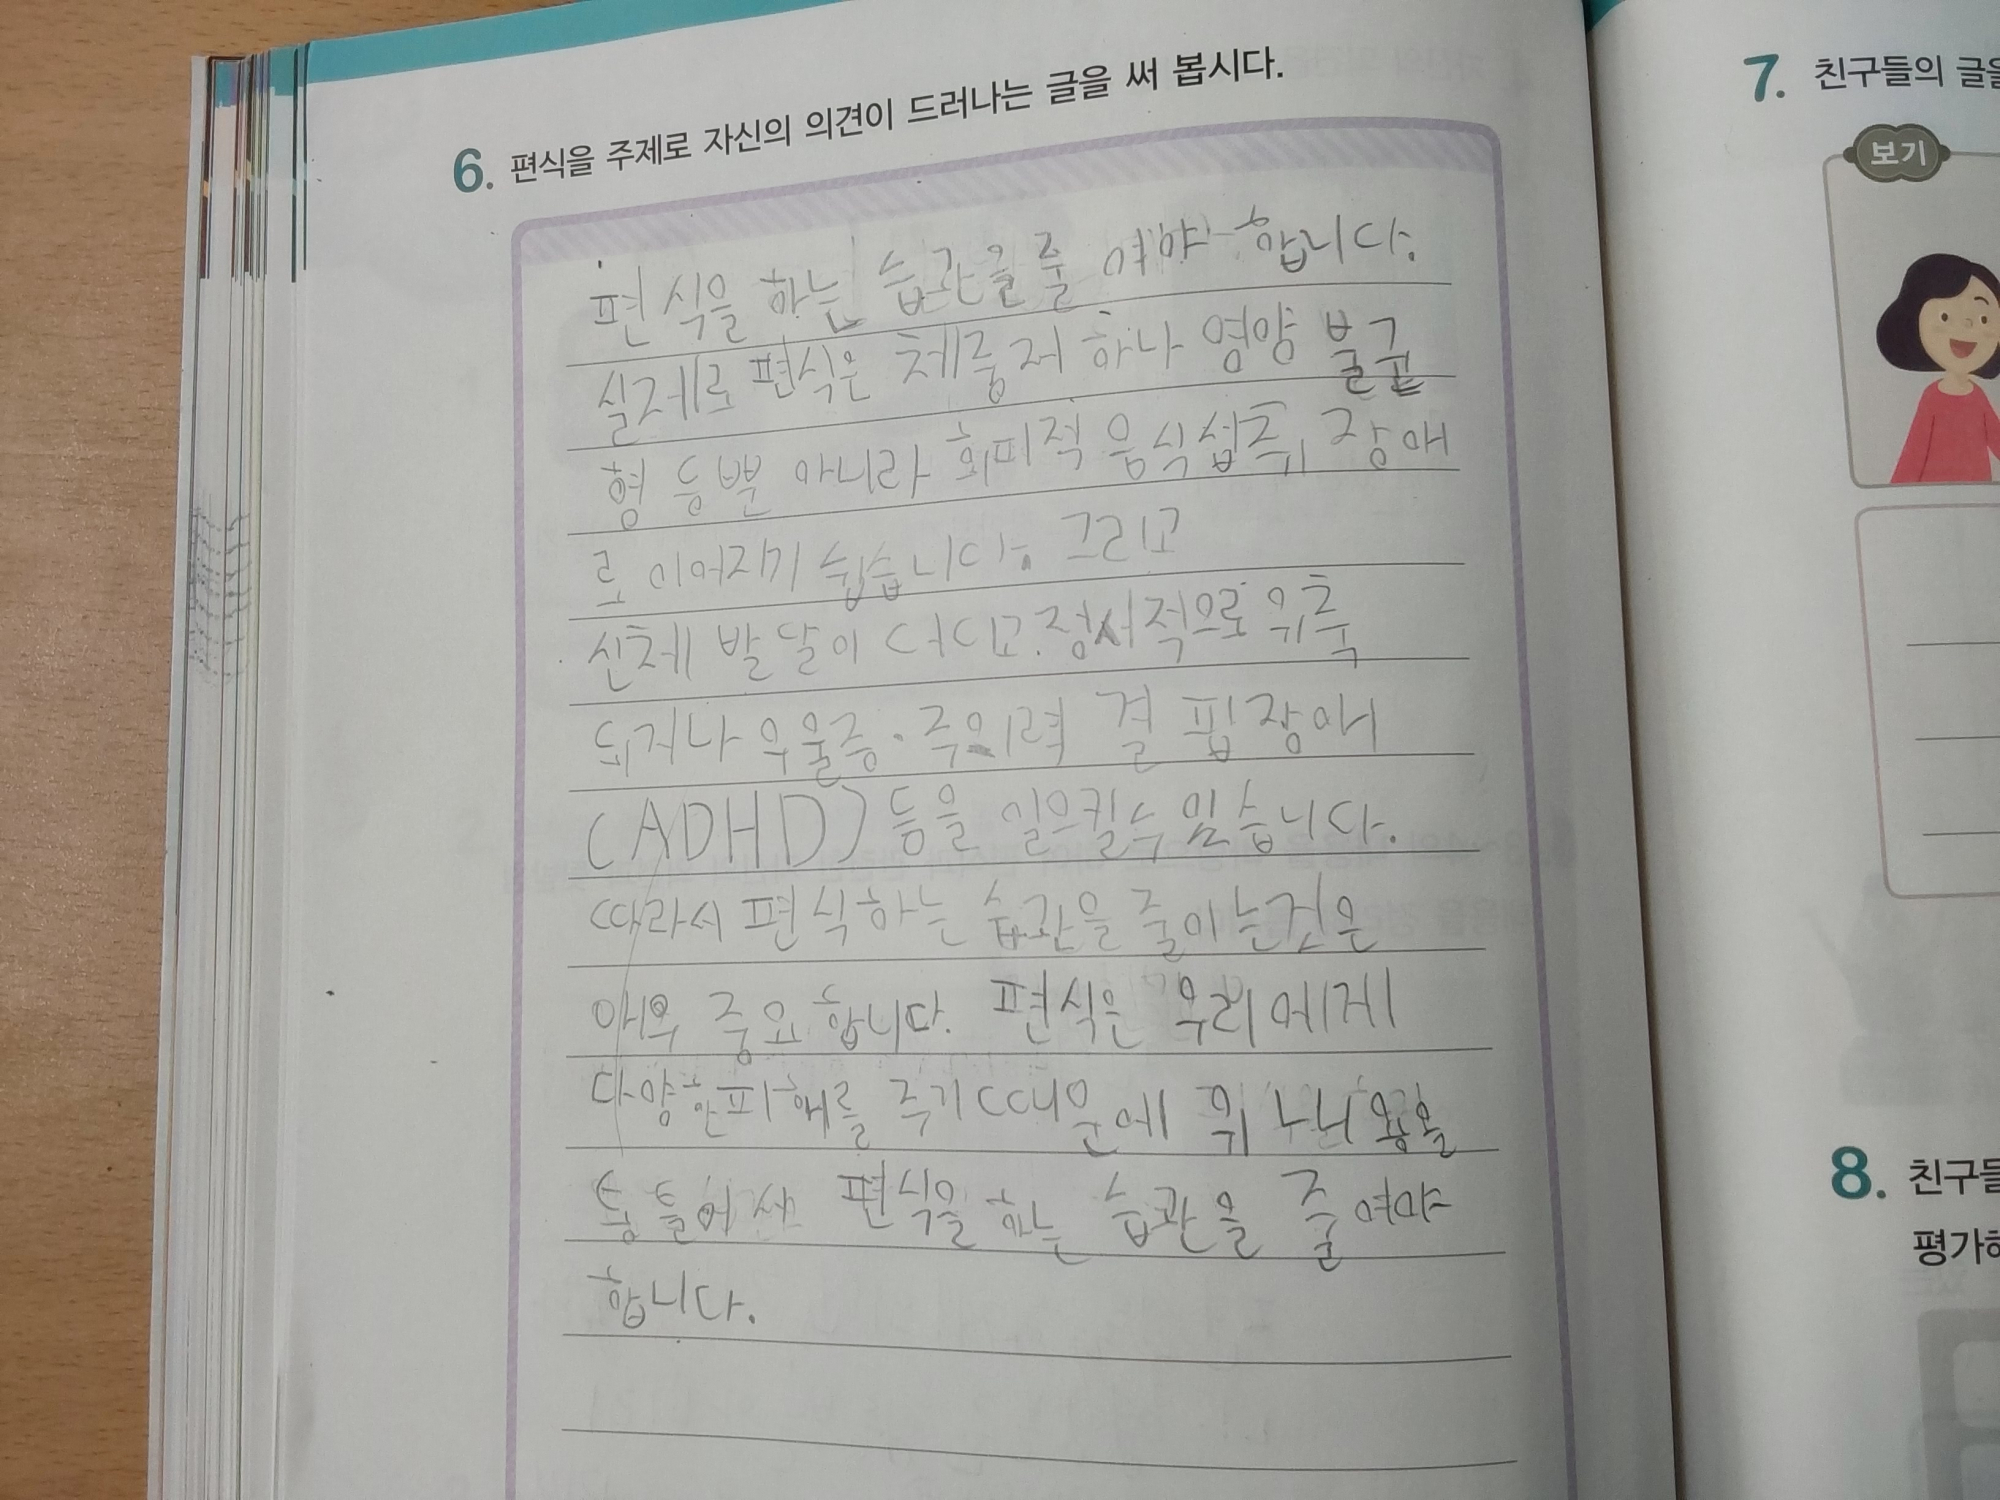 6. 편식을 주제로 자신의 의견이 드러나는 글을 써 봅시다.
편식을 하는 습관을 줄여야 합니다.
실제로 편식은 체중저하나 영양 불균
형 등뿐 아니라 회피적 음식섭취 장애
로 이어지기 쉽습니다. 그리고
신체 발달이 더디고. 정서적으로 위축
되거나 우울증·주의력 결핍장애
(ADHD) 등을 일으킬수 있습니다.
따라서 편식하는 습관을 줄이는것은
매우 중요합니다. 편식은 우리에게
다양한피해를 주기때문에 위
편식을 하는 습관을 줄여야
합니다.
7. 친구들의 글을
보기
8. 친구들
평가해